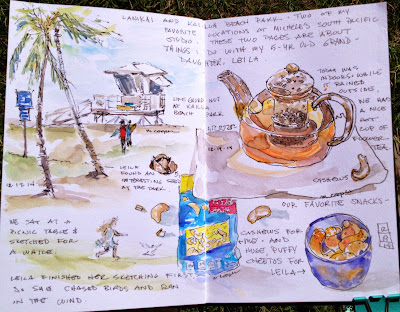 LANIKAI AND KAILUA BEACH PARK. TWO OF MY
FAVORITE LOCATIONS AT MICHELE'S SOUTH PACIFIC
STUDIO. THESE TWO PAGES ARE ABOUT
THINGS I DO WITH MY 5-YR OLD GRAND-
DAUGHTER, LEILA.
LIFE GUARD
AT KAILUA
BEACH
LEILA
FOUND AN
INTERESTING SEED
AT THE PARK
12.12.14
WE SAT AT A
PICNIC TABLE &
SKETCHED FOR
A WHILE.
LEILA FINISHED HER SKETCHING FIRST
SO SHE CHASED BIRDS AND RAN
IN THE WIND.
TEA WAS
INDOORS WHILE
IT RAINED
OUTSIDE.
WE HAD
A NICE
HOT
CUP OF
12.14.14
CASHEWS
OUR FAVORITE SNACKS-
CASHEWS FOR
ME - AND
HUGE PUFFY
CHEETOS FOR
LEILA →